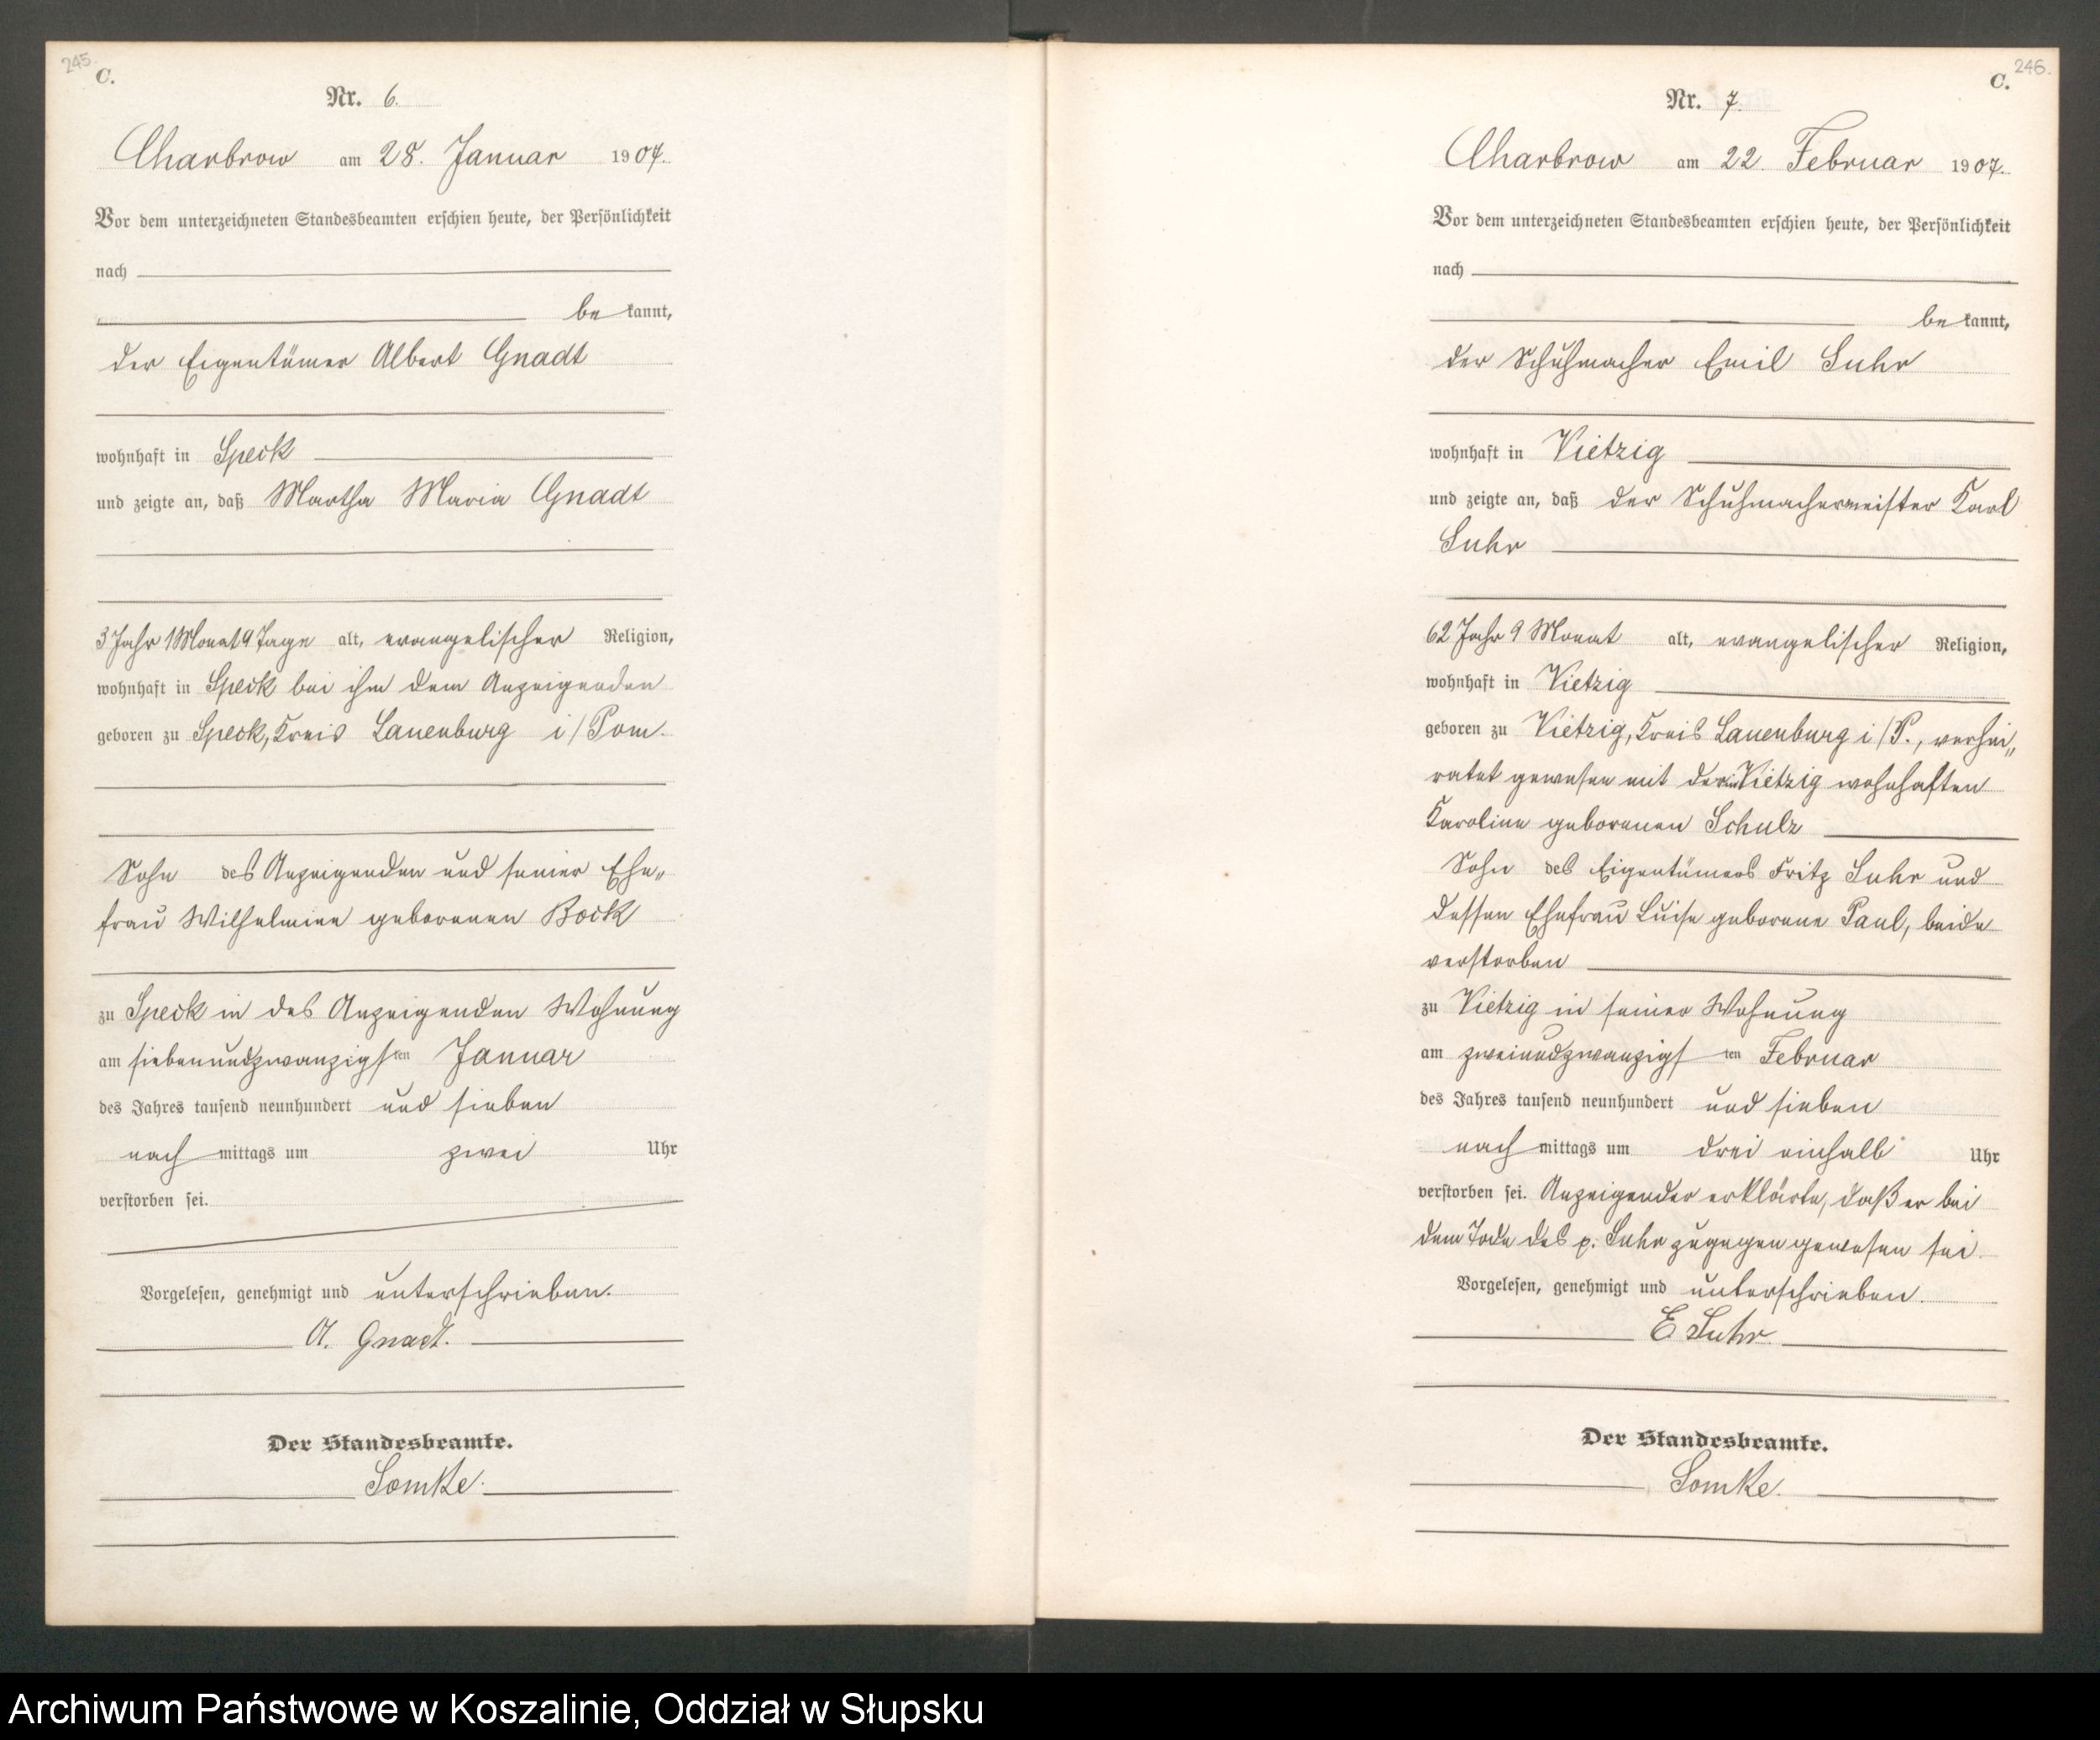 245.
C.
Nr. 6.
Charbrow am 28. Januar 1907.
Vor dem unterzeichneten Standesbeamten erschien heute, der Persönlichkeit
nach
be kannt,
der Eigentümer Albert Gnadt
wohnhaft in Speck
und zeigte an, daß Martha Maria Gnadt
3 Jahr 1 Monat 9 Tage alt, evangelischer Religion,
wohnhaft in Speck bei ihm dem Anzeigenden
geboren zu Speck, Kreis Lauenburg i/Pom.
Sohn des Anzeigenden und seiner Ehe„
frau Wilhelmine geborenen Bock
zu Speck in des Anzeigenden Wohnung
am siebenundzwanzigsten Januar
des Jahres tausend neunhundert und sieben
nach mittags um zwei Uhr
verstorben sei.
Vorgelesen, genehmigt und unterschrieben.
A. Gnadt.
Der Standesbeamte.
Somke.
246.
C.
Nr. 7.
Charbrow am 22. Februar 1907.
Vor dem unterzeichneten Standesbeamten erschien heute, der Persönlichkeit
nach
be kannt,
der Schuhmacher Emil Suhr
wohnhaft in Vietzig
und zeigte an, daß der Schuhmachermeister Karl
Suhr
62 Jahr 9 Monat alt, evangelischer Religion,
wohnhaft in Vietzig
geboren zu Vietzig, Kreis Lauenburg i/P., verhei„
ratet gewesen mit der in Vietzig wohnhaften
Karoline geborenen Schulz
Sohn des Eigentümers Fritz Suhr und
dessen Ehefrau Luise geborene Paul, beide
verstorben
zu Vietzig in seiner Wohnung
am zweiundzwanzigsten Februar
des Jahres tausend neunhundert und sieben
nach mittags um drei einhalb Uhr
verstorben sei. Anzeigender erklärte, daß er bei
dem Tode des p. Suhr zugegen gewesen sei.
Vorgelesen, genehmigt und unterschrieben.
E Suhr.
Der Standesbeamte.
Somke.
Archiwum Państwowe w Koszalinie, Oddział w Słupsku